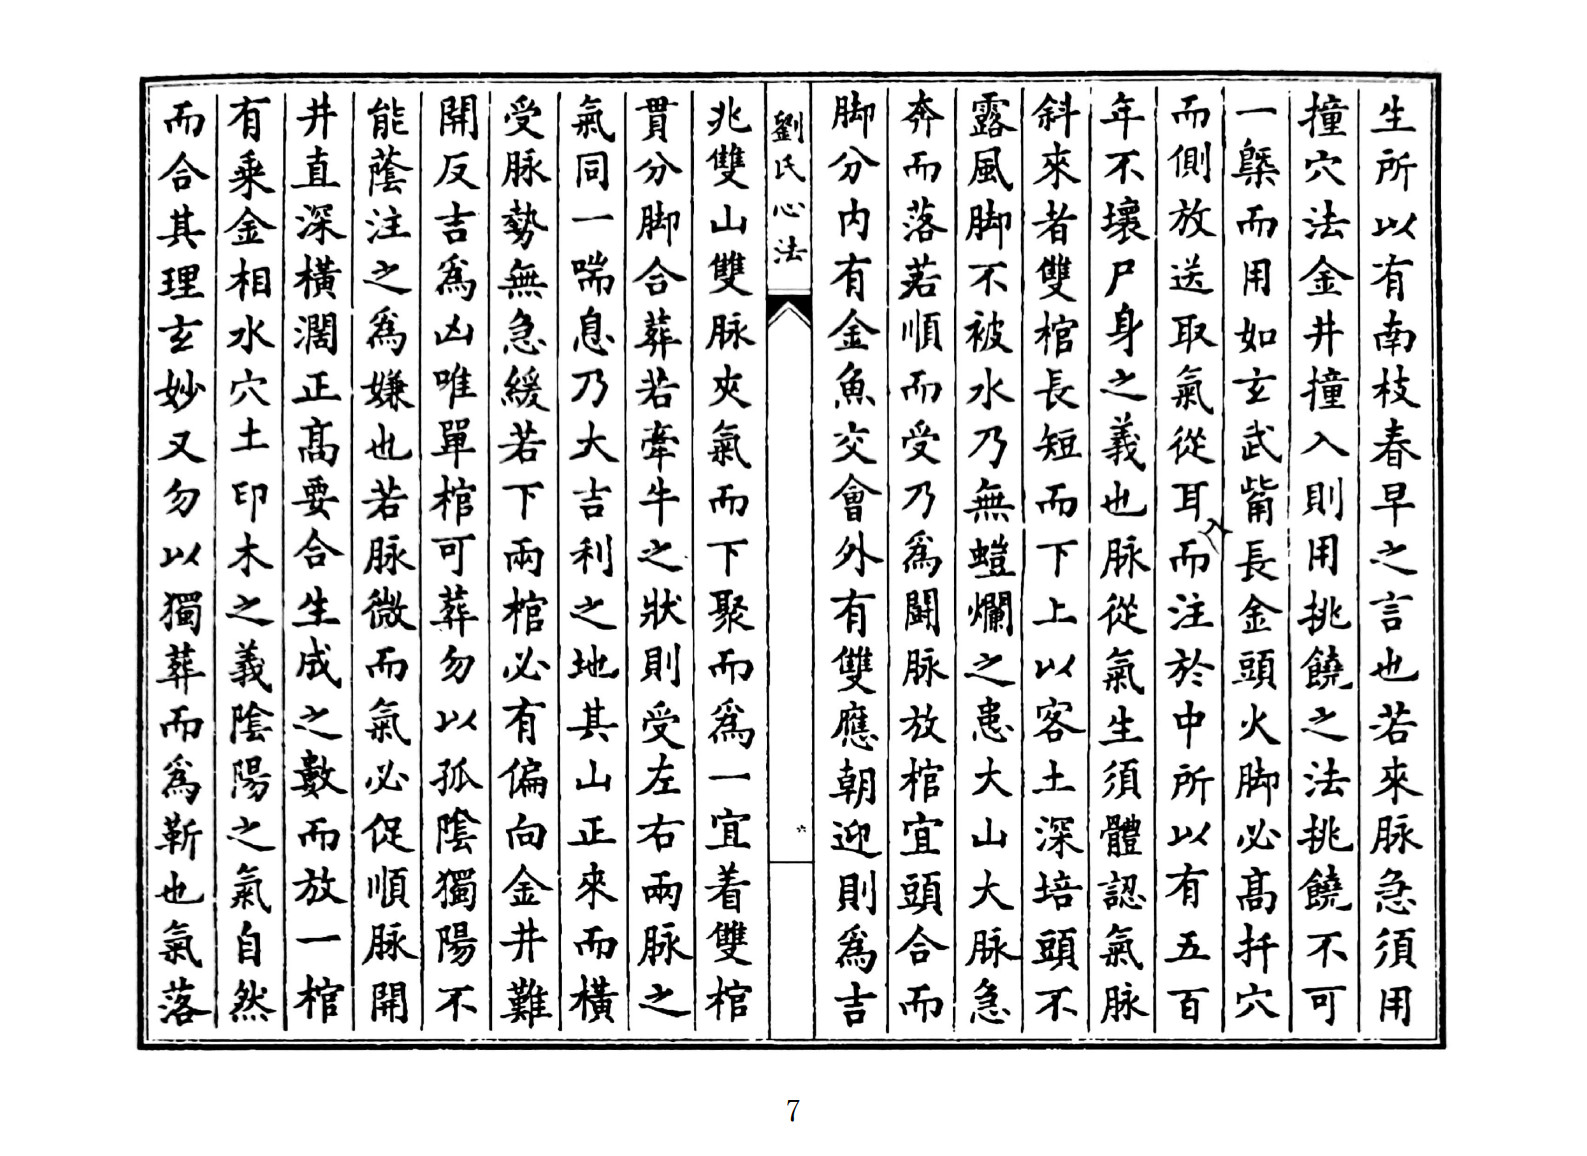 生所以有南枝春早之言也若來脉急須用
撞穴法金井撞入則用挑饒之法挑饒不可
一槩而用如玄武觜長金頭火脚必高扦穴
而側放送取氣從耳入而注於中所以有五百
年不壞尸身之義也脉從氣生須體認氣脉
斜來者雙棺長短而下上以客土深培頭不
露風脚不被水乃無螘爛之患大山大脉急
奔而落若順而受乃爲鬭脉放棺宜頭合而
脚分内有金魚交會外有雙應朝迎則爲吉
劉氏心法
六
兆雙山雙脉夾氣而下聚而爲一宜着雙棺
貫分脚合葬若牽牛之狀則受左右兩脉之
氣同一喘息乃大吉利之地其山正來而橫
受脉勢無急緩若下兩棺必有偏向金井難
開反吉爲凶唯單棺可葬勿以孤陰獨陽不
能蔭注之爲嫌也若脉微而氣必促順脉開
井直深橫濶正高要合生成之數而放一棺
有乘金相水穴土印木之義陰陽之氣自然
而合其理玄妙又勿以獨葬而爲靳也氣落
7